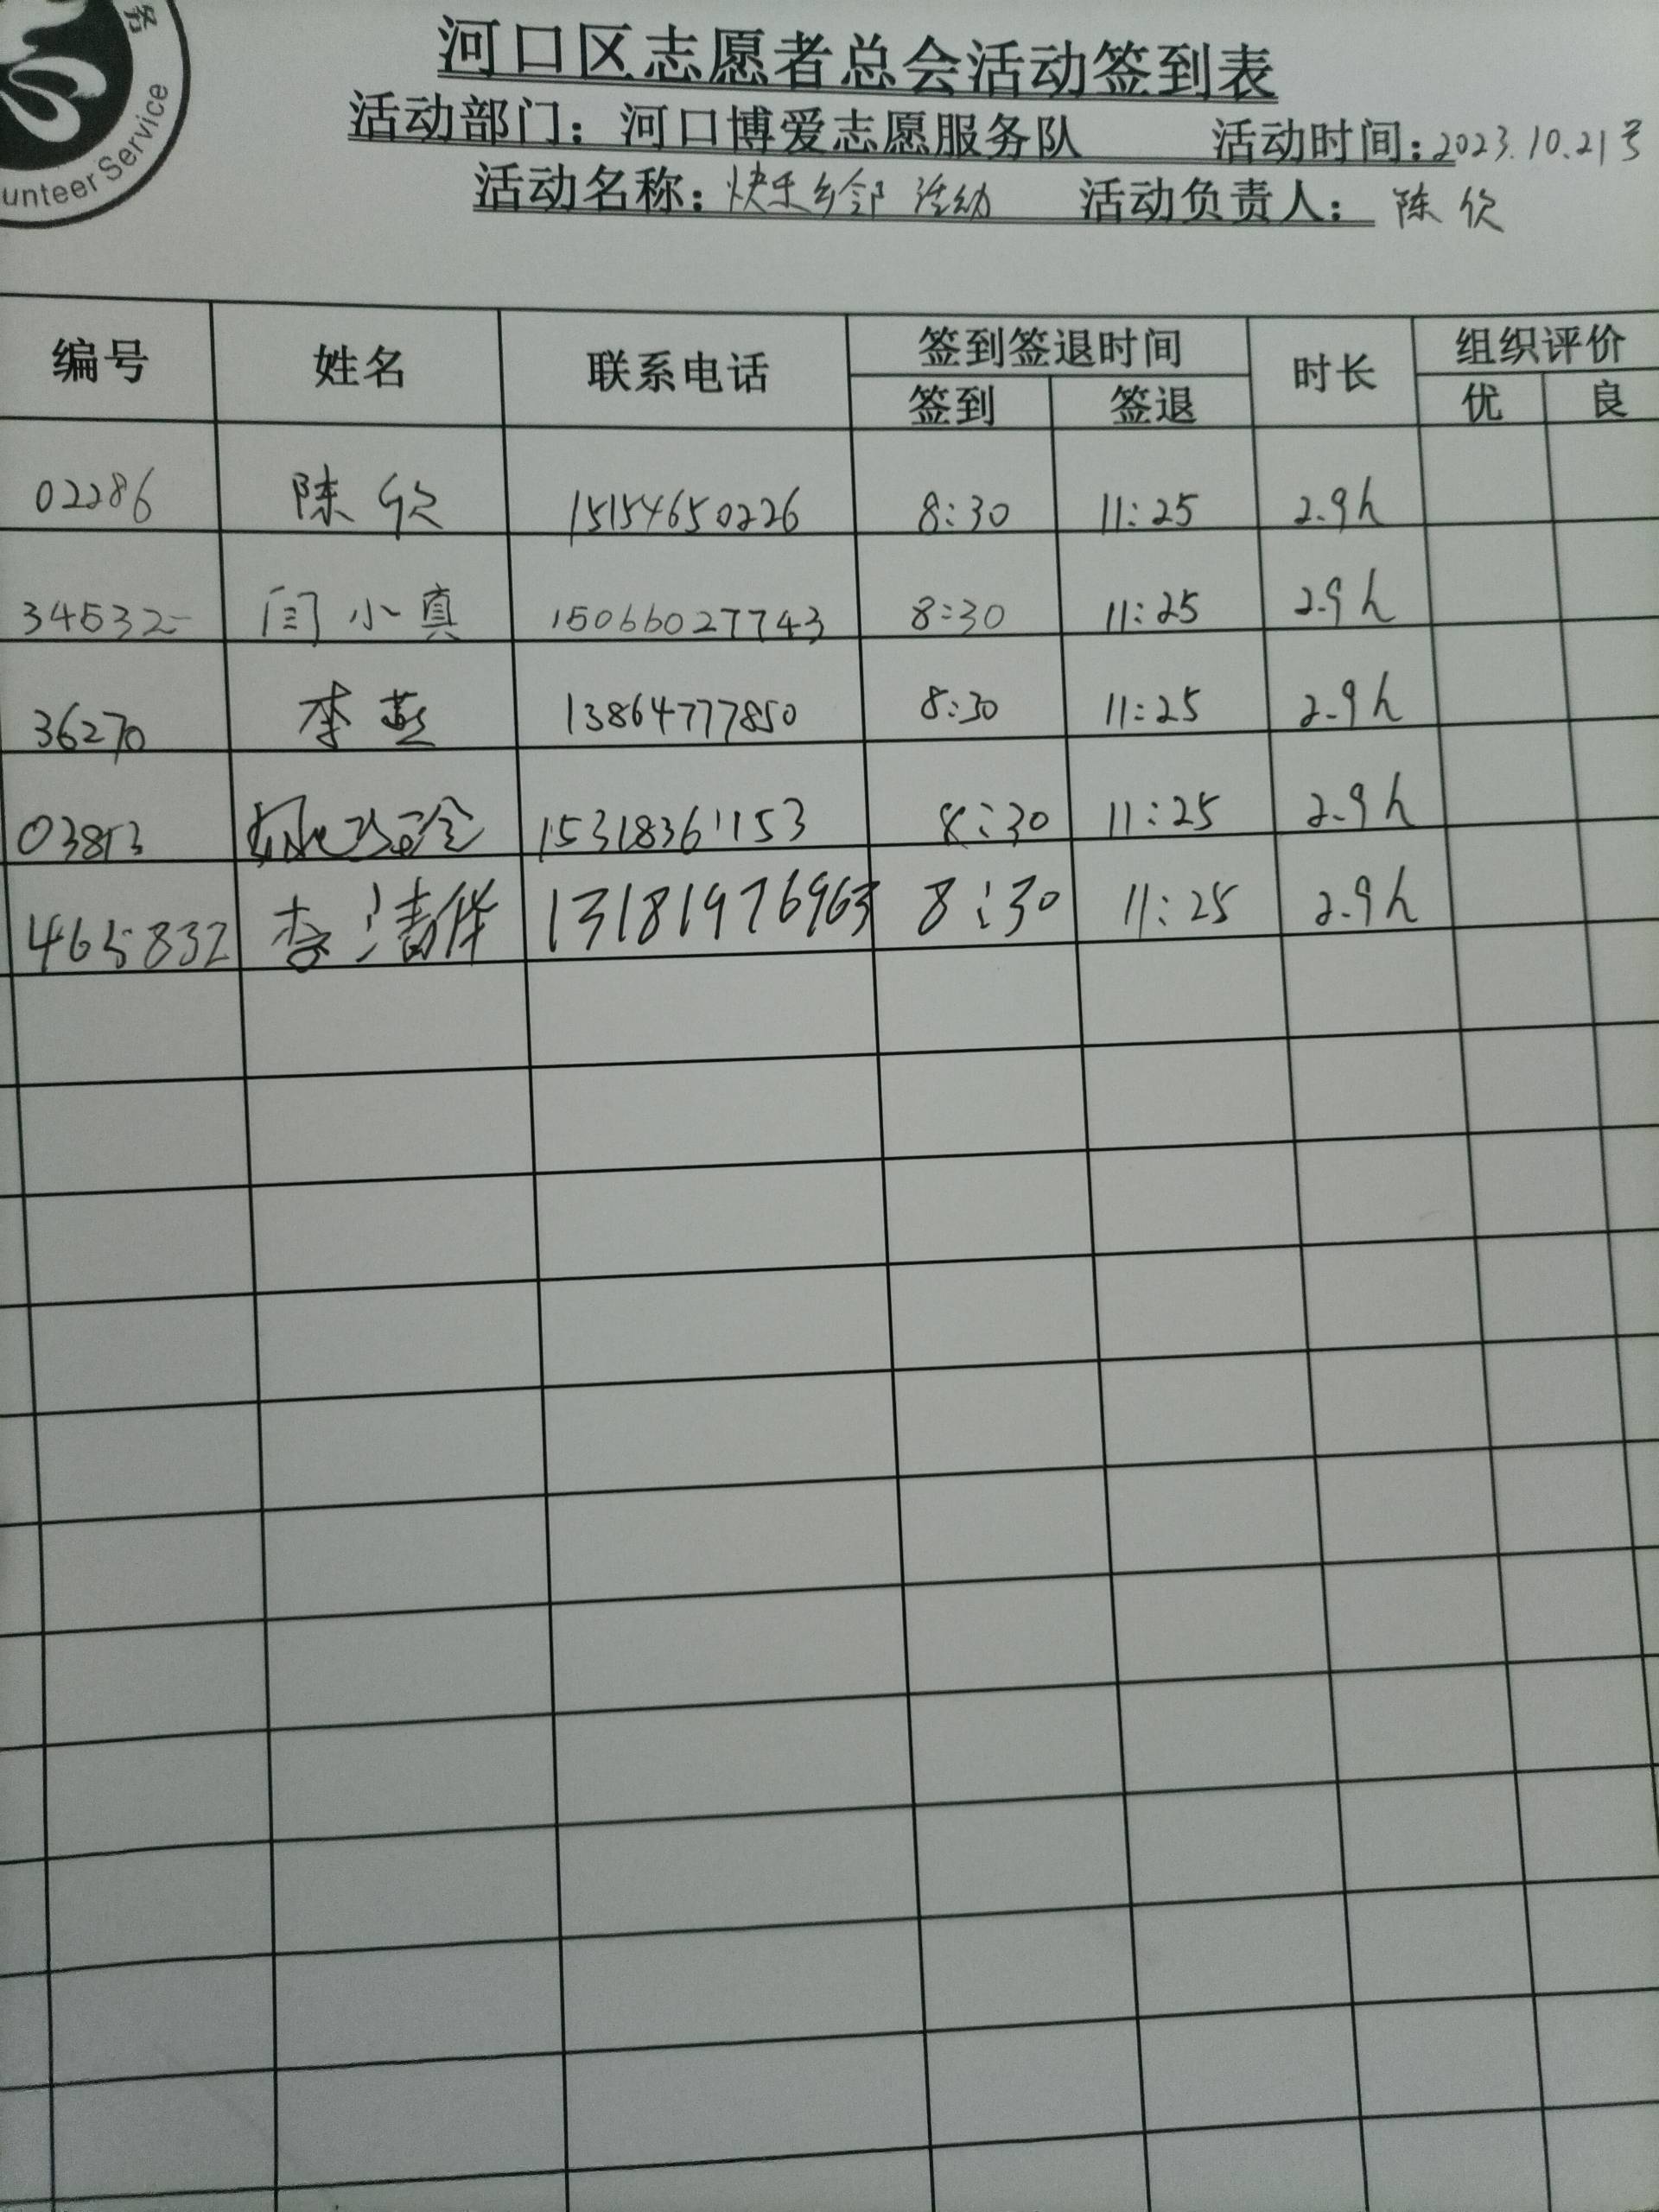 务
unteer Service
河口区志愿者总会活动签到表
活动部门：河口博爱志愿服务队 活动时间：2023.10.21号
活动名称：快乐乡邻 活动 活动负责人：陈欣
编号 姓名 联系电话 签到签退时间 时长 组织评价
签到 签退 优 良
02286 陈欣 15154650226 8:30 11:25 2.9h
34532 闫小真 15066027743 8:30 11:25 2.9h
36270 李燕 13864777850 8:30 11:25 2.9h
03853 15318361153 8:30 11:25 2.9h
465832 李 13181976963 8:30 11:25 2.9h